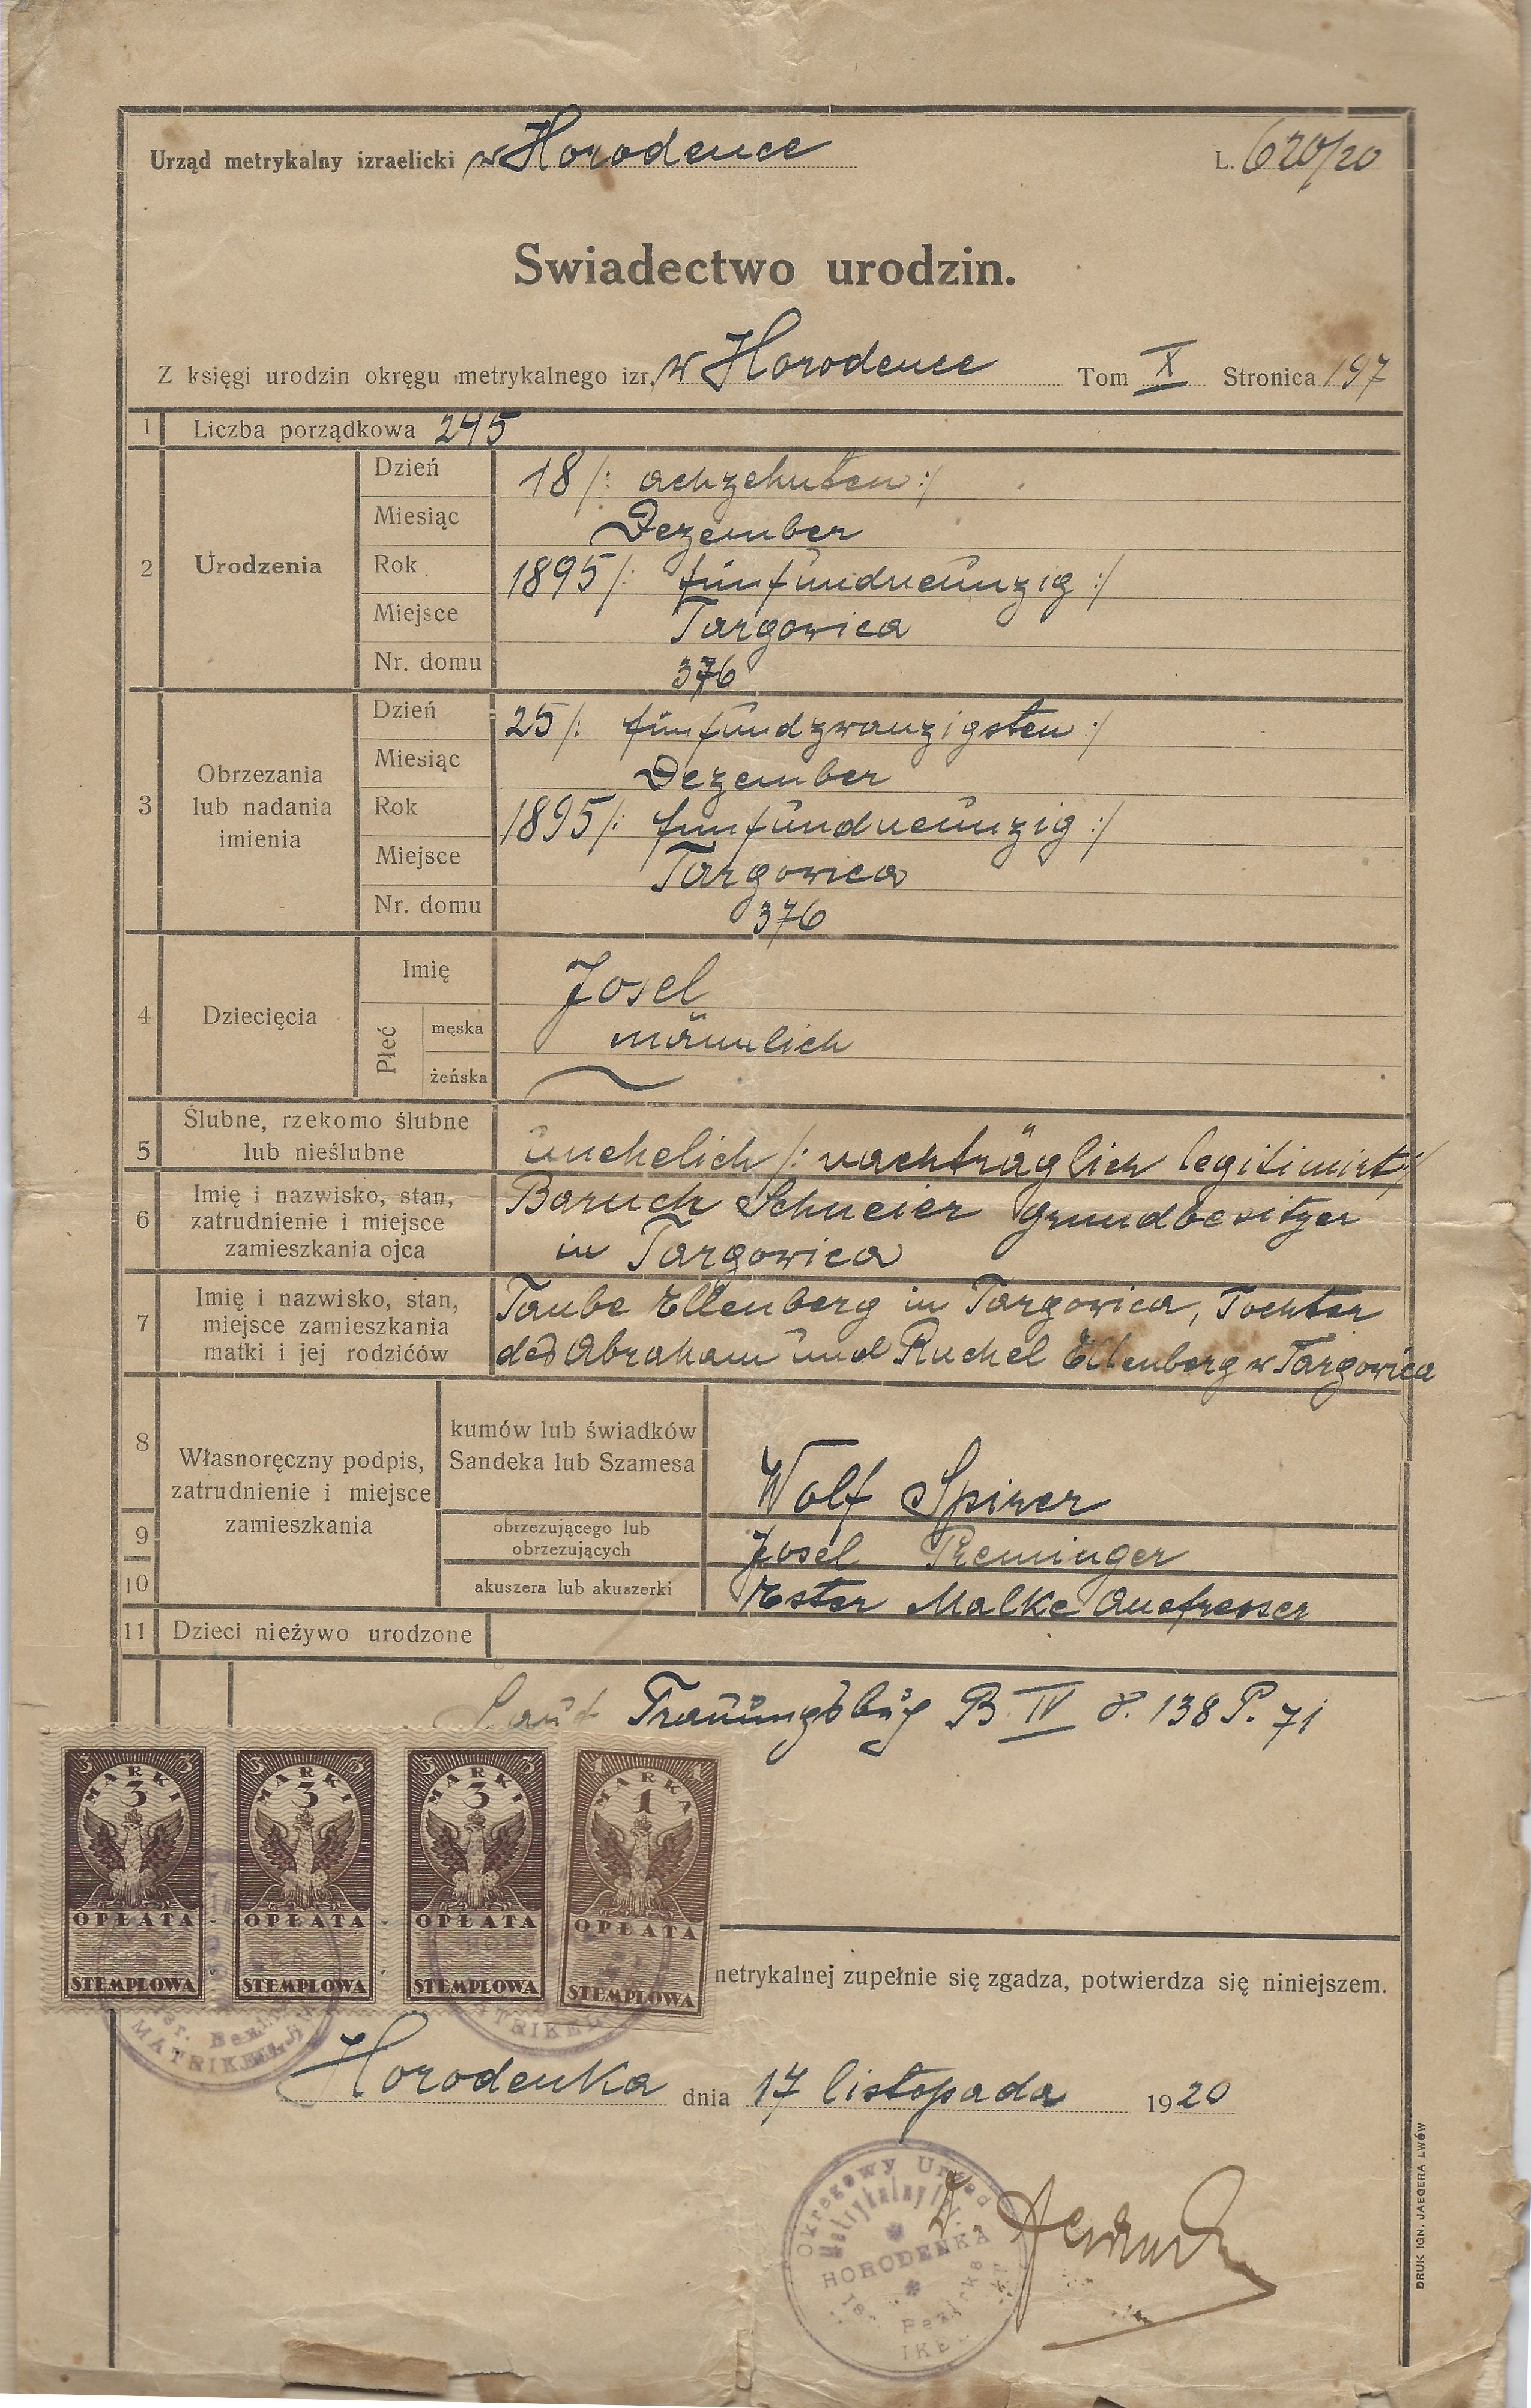 Urząd metrykalny izraelicki w Horodence L. 620/20
Swiadectwo urodzin.
Z księgi urodzin okręgu metrykalnego izr. w Horodence Tom X Stronica 197
1 Liczba porządkowa 245
2 Urodzenia
Dzień 18 /: achzehnten :/
Miesiąc Dezember
Rok 1895 /: fünfundneunzig :/
Miejsce Targowica
Nr. domu 376
3 Obrzezania lub nadania imienia
Dzień 25 /: fünfundzwanzigsten :/
Miesiąc Dezember
Rok 1895 /: fünfundneunzig :/
Miejsce Targowica
Nr. domu 376
4 Dziecięcia
Imię Josel
Płeć męska männlich
żeńska
5 Ślubne, rzekomo ślubne
lub nieślubne
unehelich /: nachträglich legitimirt :/
6 Imię i nazwisko, stan,
zatrudnienie i miejsce
zamieszkania ojca
Baruch Schneier Grundbesitzer
in Targowica
7 Imię i nazwisko, stan,
miejsce zamieszkania
matki i jej rodzićów
Taube Ellenberg in Targowica, Tochter
des Abraham und Ruchel Ellenberg w Targowica
8 Własnoręczny podpis,
zatrudnienie i miejsce
zamieszkania
kumów lub świadków
Sandeka lub Szamesa
Wolf Spirer
9 obrzezującego lub
obrzezujących
Josel Preminger
10 akuszera lub akuszerki Ester Malke
11 Dzieci nieżywo urodzone
Laut B. IV 138 P. 71
3 3
MARKI
3
OPŁATA
STEMPLOWA
3 3
MARKI
3
OPŁATA
STEMPLOWA
3 3
MARKI
3
OPŁATA
STEMPLOWA
1 1
MARKA
1
OPŁATA
STEMPLOWA
metrykalnej zupełnie się zgadza, potwierdza się niniejszem.
MATRIKEL
Horodenka dnia 17 listopada 1920
Okręgowy Urząd
Metrykalny
HORODENKA
DRUK IGN. JAEGERA LWÓW